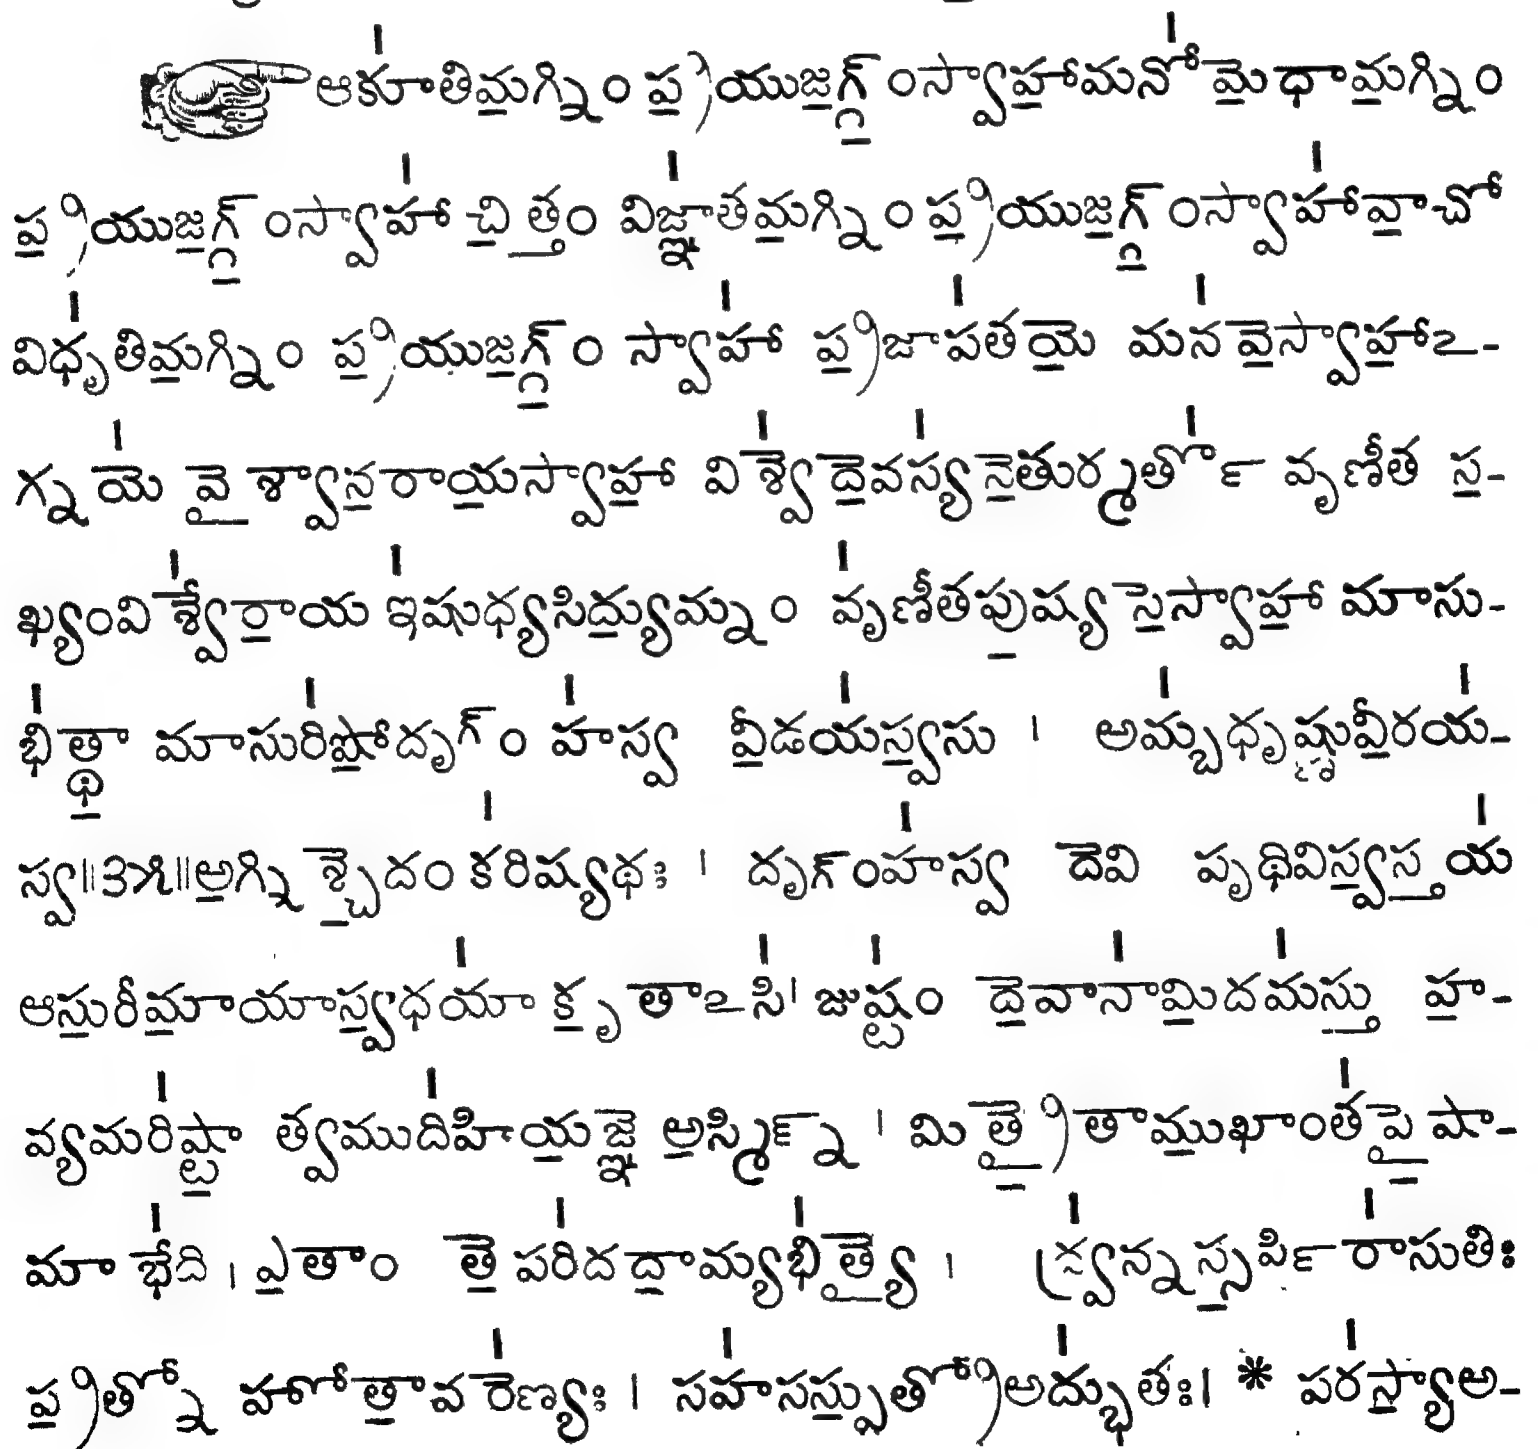 ఆకూ॑తిమ॒గ్నిం ప్ర॒యుజ॒గ్గ్॒ంస్వాహా॒మనో॑మే॒ధామ॒గ్నిం
ప్ర॒యుజ॒గ్గ్॒ంస్వాహా॑ చి॒త్తం॒ విజ్ఞా॑తమ॒గ్నిం ప్ర॒యుజ॒గ్గ్॒ంస్వాహా॑వా॒చో
విధృ॑తిమ॒గ్నిం ప్ర॒యుజ॒గ్గ్॒ం స్వాహా॑ ప్ర॒జాప॑తయే॒ మన॑వే॒స్వాహా॒ఽ-
గ్నయే॑ వై॒శ్వాన॒రాయ॒స్వాహా॒ విశ్వే॑దే॒వస్య॑నే॒తుర్మర్తో॑ వృణీత స॒-
ఖ్యంవిశ్వే॑రా॒య ఇ॑షుధ్యసిద్యు॒మ్నం వృ॑ణీతపు॒ష్యసే॒స్వాహా॒ మాసు-
భి॑త్థా॒ మాసురి॑షో॒దృగ్ం హ॑స్వ వీ॒డయ॑స్వ॒సు । అమ్బ॑ధృష్ణువీ॒రయ॑-
స్వ॥౩౫॥అ॒గ్నిశ్చే॒దం క॑రిష్యథః । దృగ్ంహ॑స్వ దేవి పృథివిస్వ॒స్త॒య॑
ఆసు॒రీమా॒యాస్వ॒ధయా॑ కృ॒తాఽసి॑। జుష్టం॑ దే॒వానా॑మి॒దమ॑స్తు॒ హ॒-
వ్యమరి॑ష్టా॒ త్వముది॑హియ॒జ్ఞే అ॒స్మిర్న్ । మిత్రై॒తాము॒ఖాంత॑పై॒షా-
మా భే॑ది । ఎ॒తాం తే॒ పరి॑దదా॒మ్యభి॑త్యై॒ । ద్ర్వ॑న్నస్స॒ర్పిరా॑సుతిః
ప్ర॒త్నో హోతా॒వరే॑ణ్యః । సహ॑సస్పు॒త్రోఅద్భు॑తః। * పర॑స్యా॒అ-